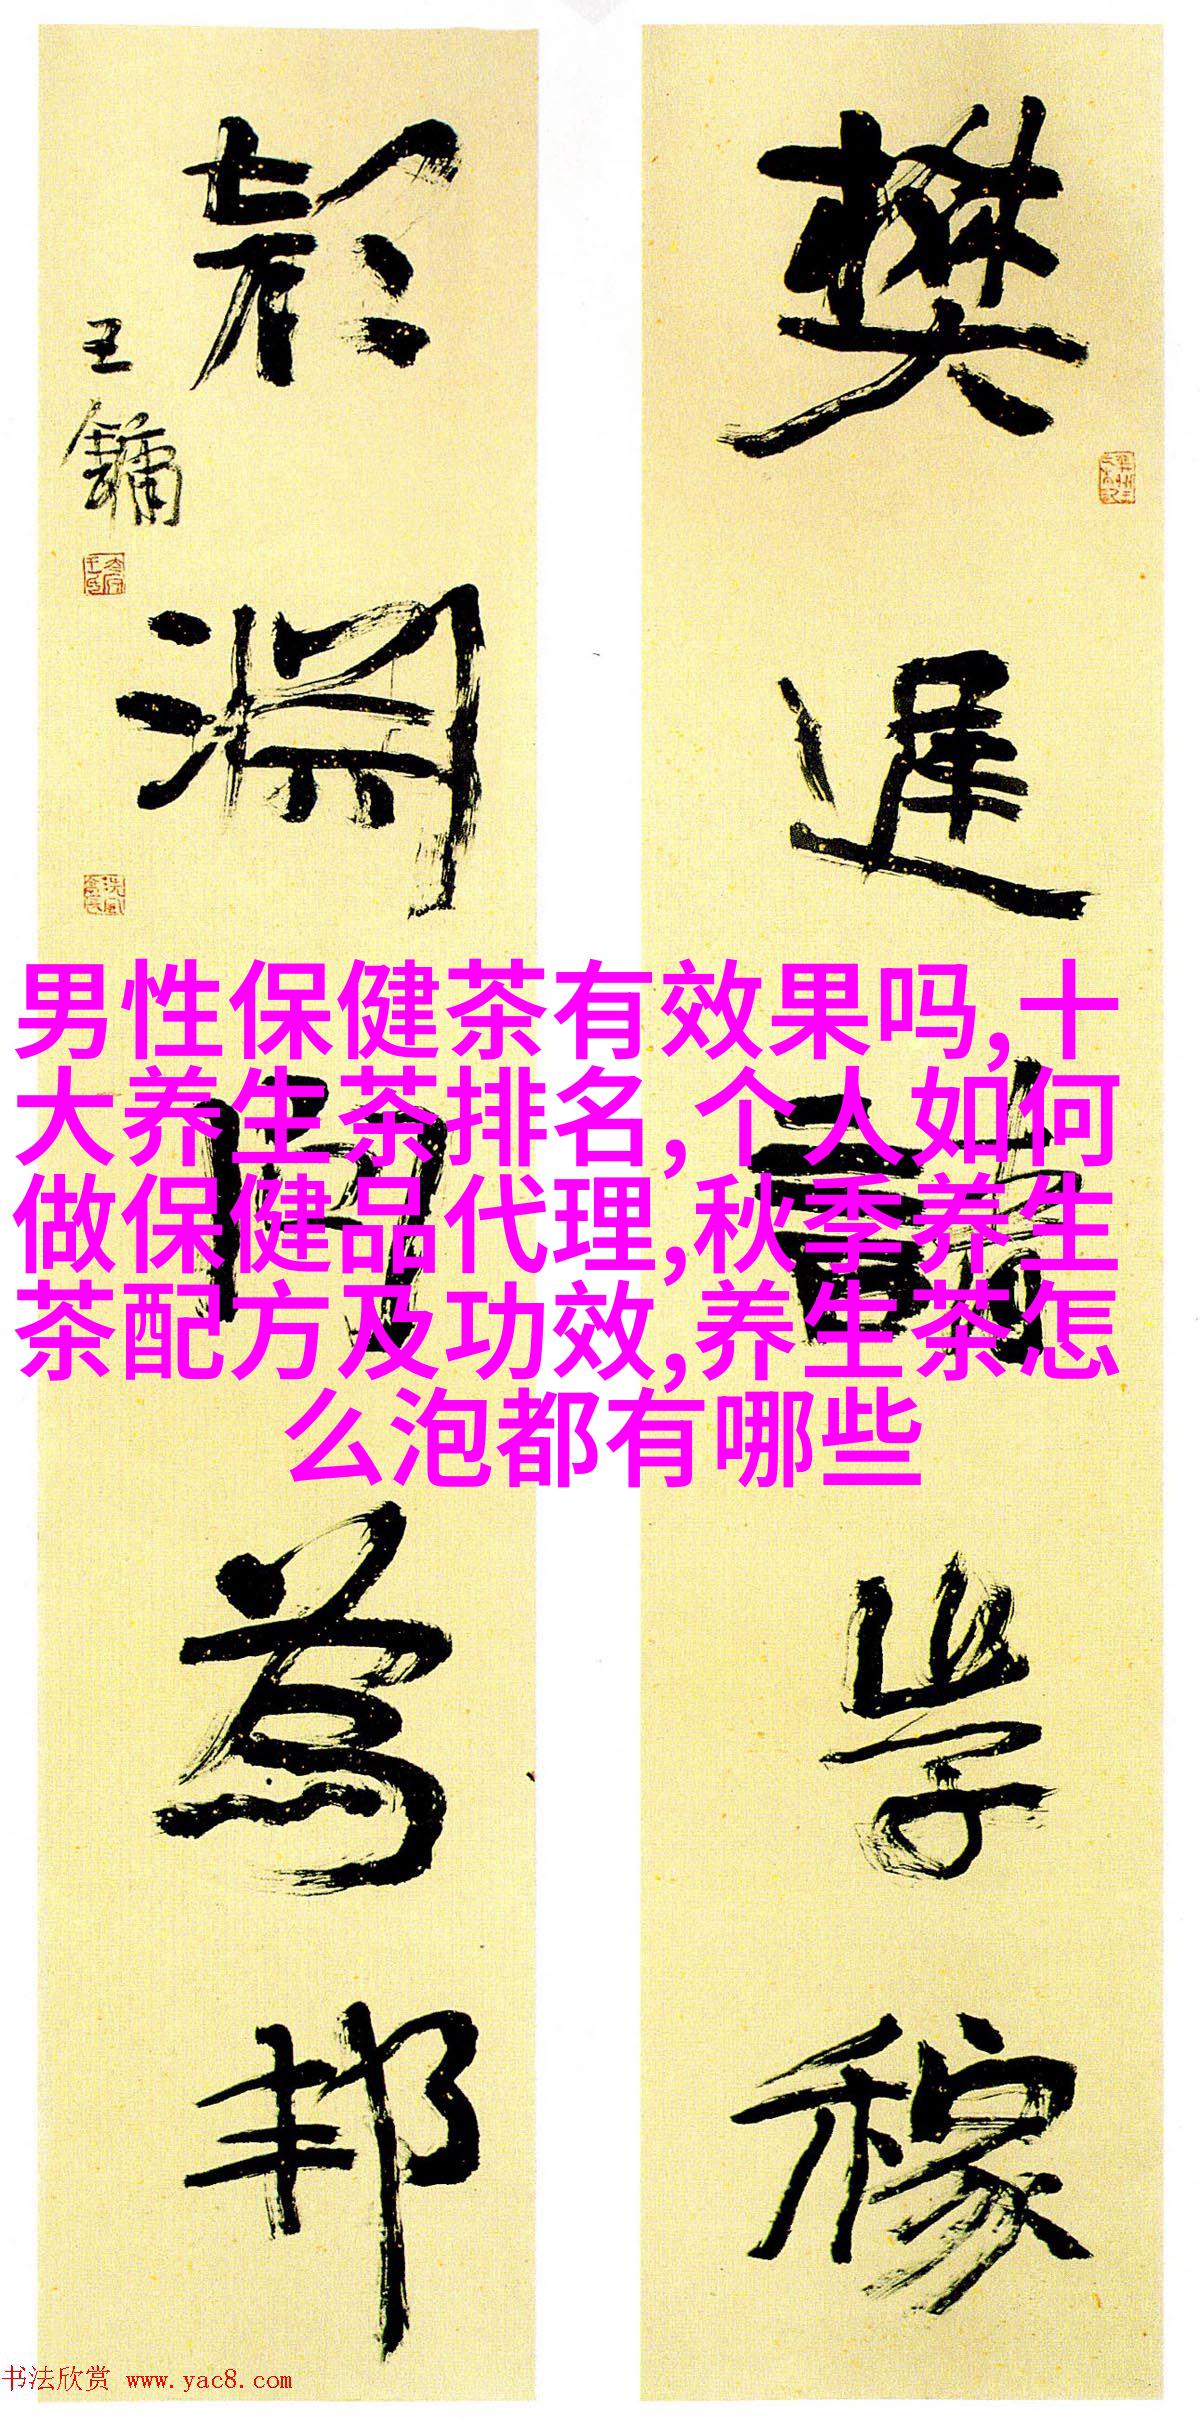 樊遲請學稼
顔淵問為邦
王鏞
男性保健茶有效果吗,十
大养生茶排名,个人如何
做保健品代理,秋季养生
茶配方及功效,养生茶怎
么泡都有哪些
书法欣赏 www.yac8.com